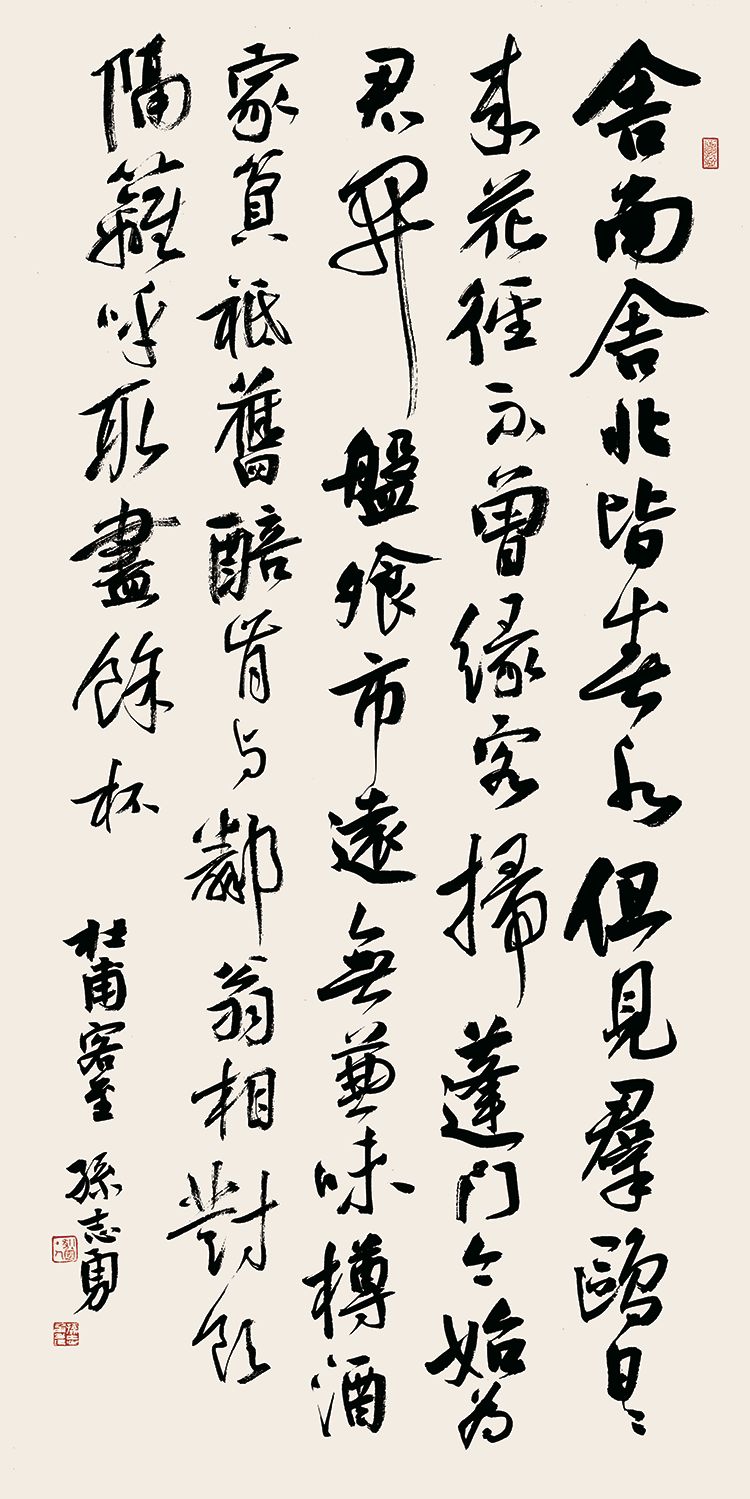 舍南舍北皆春水但見羣鷗日〻
來花徑不曾緣客掃蓬門今始为
君開盤飧市遠無兼味樽酒
家貧祗舊醅肯与鄰翁相對飲
隔籬呼取盡餘杯
杜甫客至 孫志勇